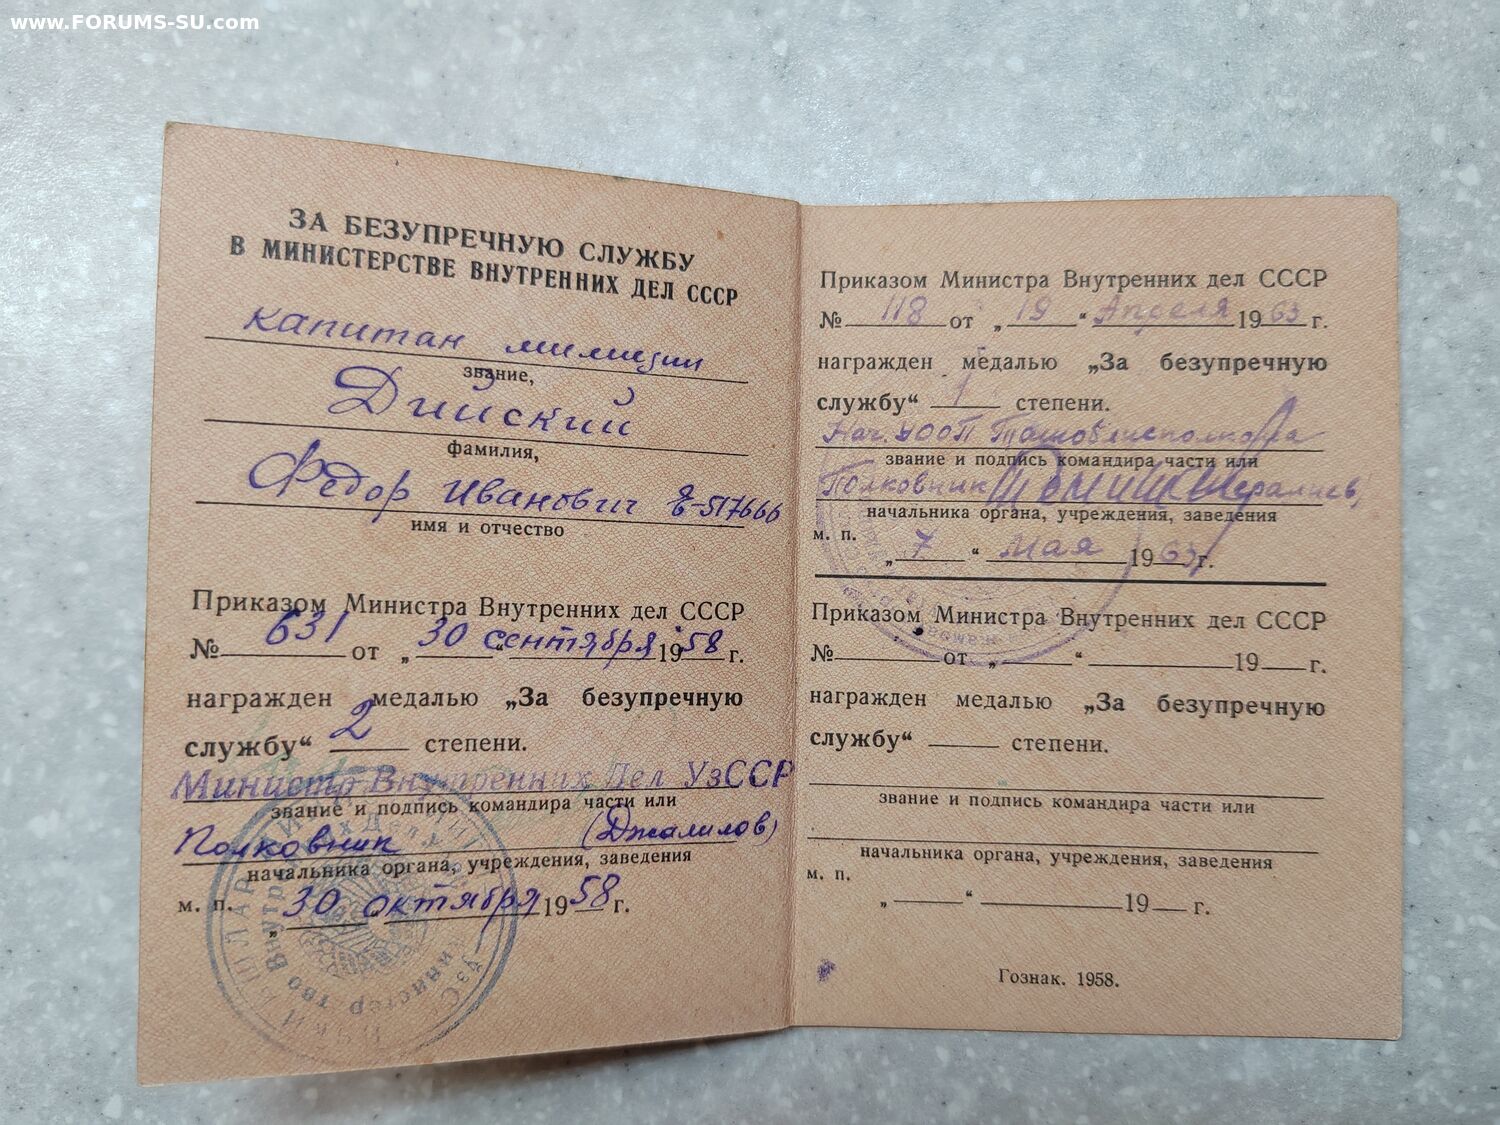 www.FORUMS-SU.com
ЗА БЕЗУПРЕЧНУЮ СЛУЖБУ
В МИНИСТЕРСТВЕ ВНУТРЕННИХ ДЕЛ СССР
капитан милиции
звание,
Дийский
фамилия,
Федор Иванович Е-517666
имя и отчество
Приказом Министра Внутренних дел СССР
№ 631 от „30 “ сентября 1958 г.
награжден медалью „За безупречную
службу“ 2 степени.
Министр Внутренних Дел УзССР
звание и подпись командира части или
Полковник (Джалилов)
начальника органа, учреждения, заведения
м. п. „30 октября 1958 г.
Приказом Министра Внутренних дел СССР
№ 118 от „19“ Апреля 1963 г.
награжден медалью „За безупречную
службу“ 1 степени.
Нач. УООП Ташоблисполкома
звание и подпись командира части или
Полковник
начальника органа, учреждения, заведения
м. п.
„7“ мая 1963 г.
Приказом Министра Внутренних дел СССР
№ от „ “ 19 г.
награжден медалью „За безупречную
службу“ степени.
звание и подпись командира части или
начальника органа, учреждения, заведения
м. п.
„ “ 19 г.
Гознак. 1958.